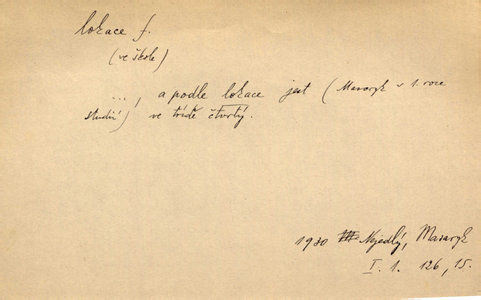 lokace f.
(ve škole)
..., a podle lokace jest (Masaryk v 1. roce
studií) ve třídě čtvrtý.
1930 Nejedlý, Masaryk
I. 1. 126, 15.